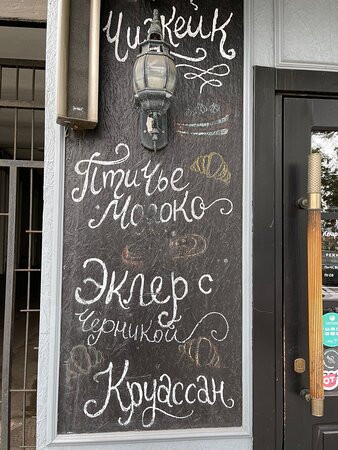 Чизкейк
Птичье
Молоко
Эклер с
Черникой
Круассан